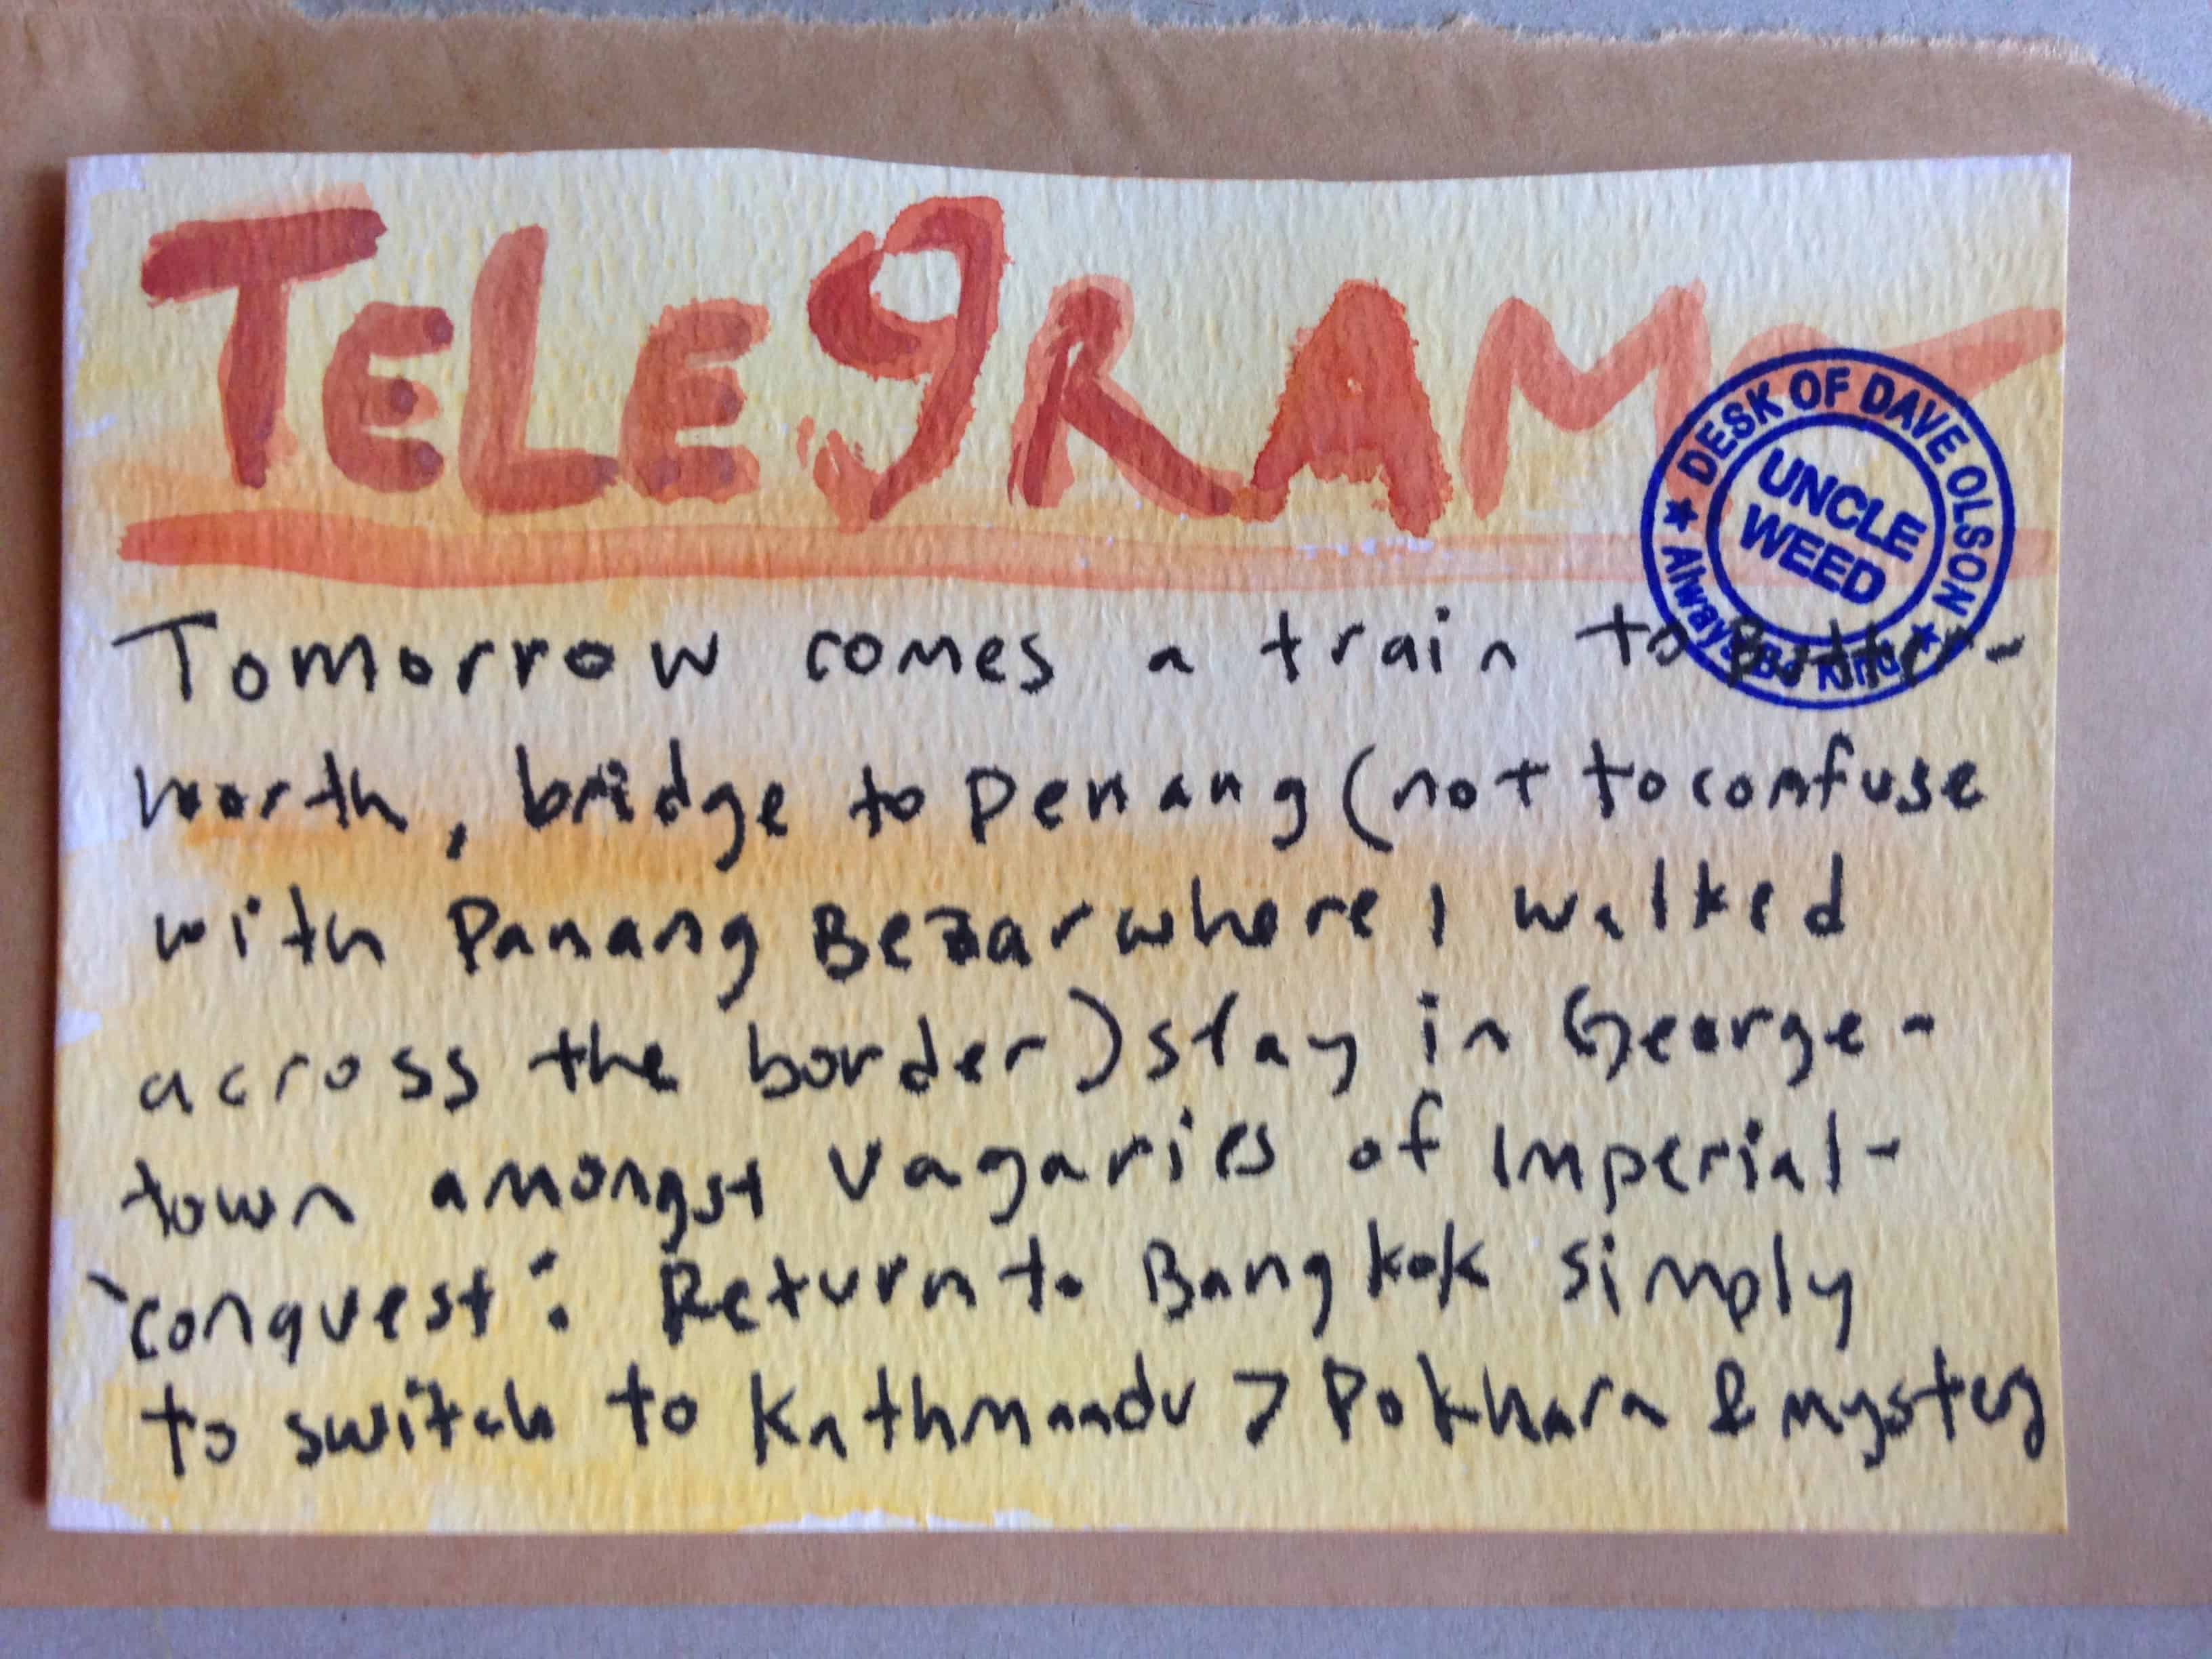 TELEgRAM
DESK OF DAVE OLSON
UNCLE
WEED
Always Be Kind
Tomorrow comes a train to Butter-
worth, bridge to Penang (not to confuse
with Panang Bezar where I walked
across the border) stay in George-
town amongst vagaries of Imperial-
"conquest". Return to Bangkok simply
to switch to Kathmandu > Pokhara & mystery